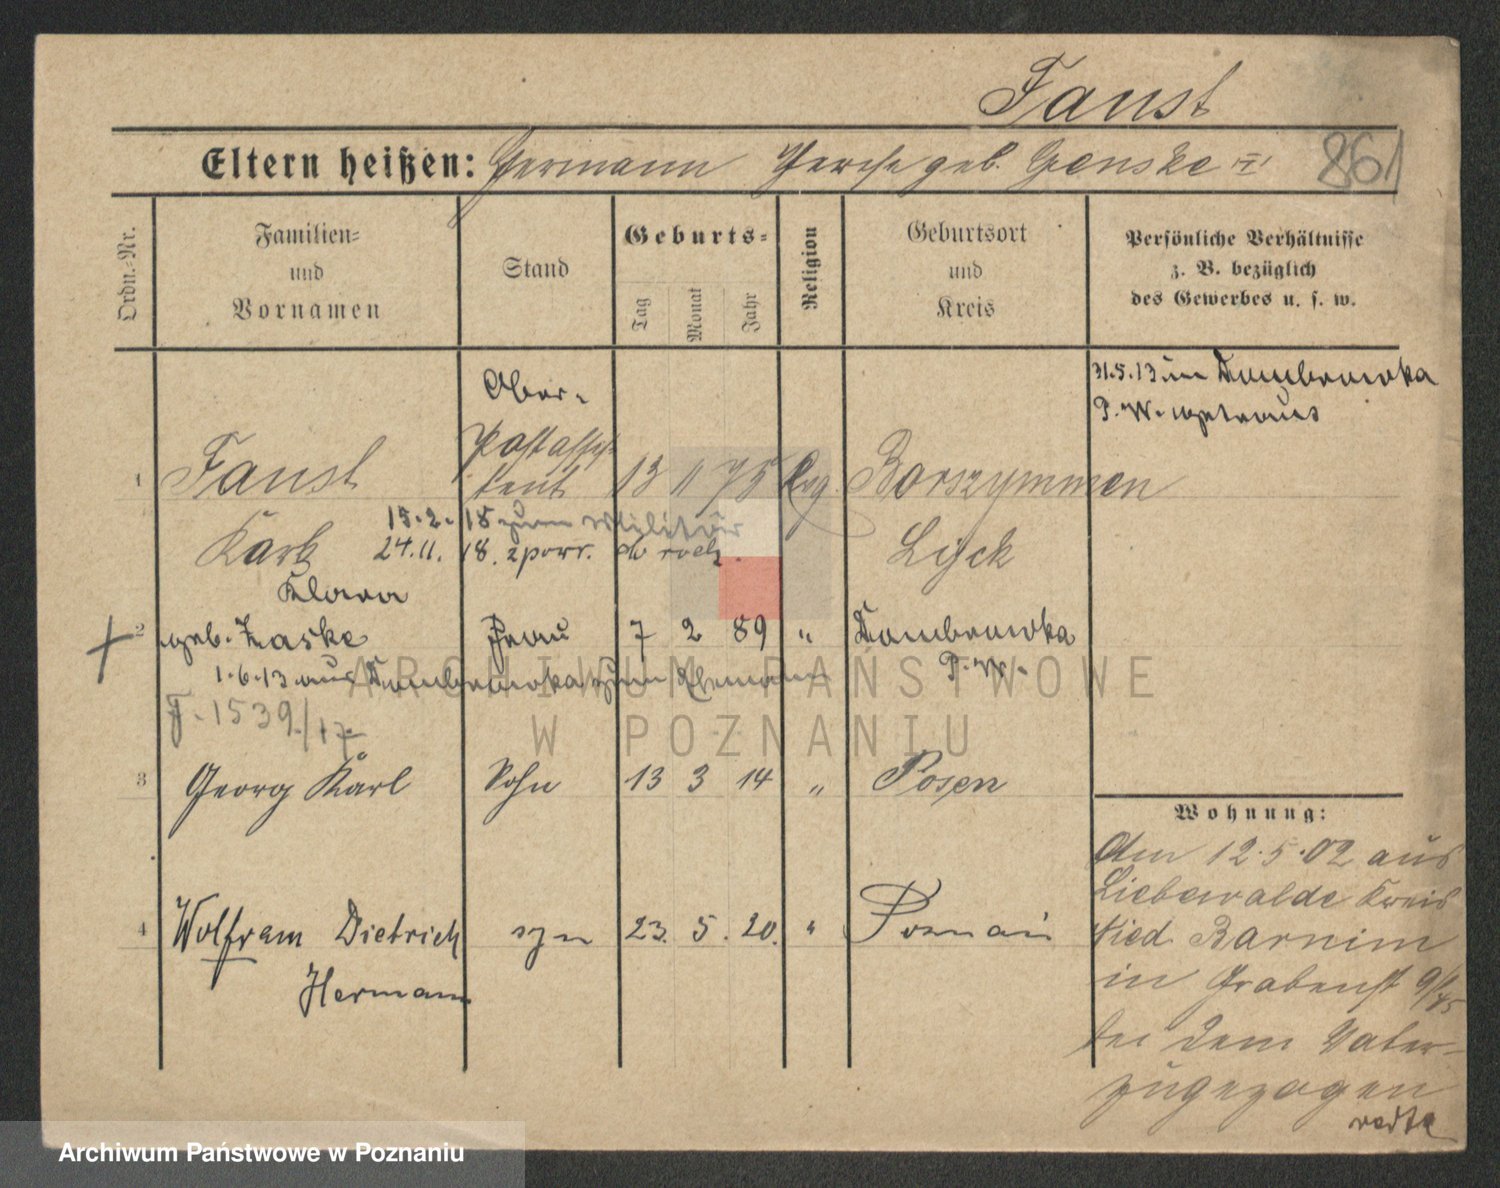 Faust
Eltern heißen: Hermann Therese geb. Genske
861
Ordn.-Nr.
Familien-
und
Vornamen
Stand
Geburts-
Tag
Monat
Jahr
Religion
Geburtsort
und
Kreis
Persönliche Verhältnisse
z. B. bezüglich
des Gewerbes u. s. w.
31.5.13 in Dombrowka
P. W. getraut
Ober-
1 Faust Postassis- 13 11 75 Evg. Borszymmen
tent
15.2.18 zum Militär
Karl 24.11.18. z powr. do rodz. Lyck
Klara
2 geb. Laske Frau 7 2 89 " Dombrowka
P. W.
1.6.13 aus Dombrowka zum Ehemann
F. 1539/17
3 Georg Karl Sohn 13 3 14 " Posen
4 Wolfram Dietrich syn 23. 5. 20. " Poznań
Hermann
Wohnung:
Am 12.5.02 aus
Liebenwalde Kreis
Nied. Barnim
in Grabenst
bei dem Vater
zugezogen
ARCHIWUM PAŃSTWOWE
W POZNANIU
Archiwum Państwowe w Poznaniu